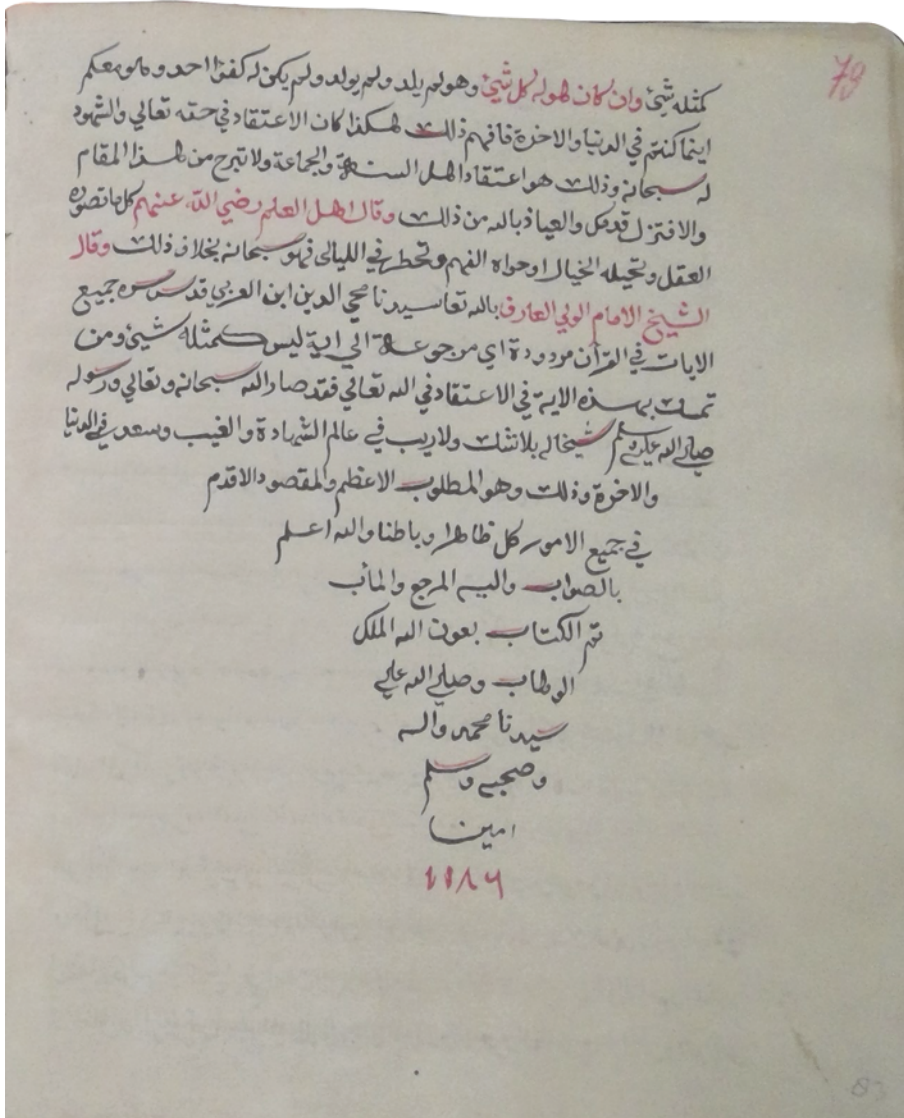 79
كمثله شيئ وان كان هو له كل شيئ وهو لم يلد ولم يولد ولم يكن له كفوا احد وهو معكم
اينما كنتم في الدنيا والاخرة فافهم ذلك هكذا كان الاعتقاد في حقه تعالي والشهود
له سبحانه وذلك هو اعتقاد اهل السنة والجماعة ولا تبرح من هذا المقام
والا فتزل قدمك والعياذ بالله من ذلك وقال اهل العلم رضي الله عنهم كل ما تصوره
العقل وتخيله الخيال او حواه الفهم وتخطر في الليالي فهو سبحانه بخلاف ذلك وقال
الشيخ الامام الولي العارف بالله تعا سيدنا محي الدين ابن العربي قدس سره جميع
الايات في القرآن مردودة اي مرجوعة الي اية ليس كمثله شيئ ومن
تمسك بهذه الاية في الاعتقاد في الله تعالي فقد صار الله سبحانه وتعالي ورسوله
صلي الله عليه وسلم شيخا له بلا شك ولا ريب في عالم الشهادة والغيب وسعد في الدنيا
والاخرة وذلك وهو المطلوب الاعظم والمقصود الاقدم
في جميع الامور كل ظاهرا وباطنا والله اعلم
بالصواب واليه المرجع والمأب
تم الكتاب بعون الله الملك
الوهاب وصلي الله علي
سيدنا محمد واله
وصحبه وسلم
امين
١١٨٦